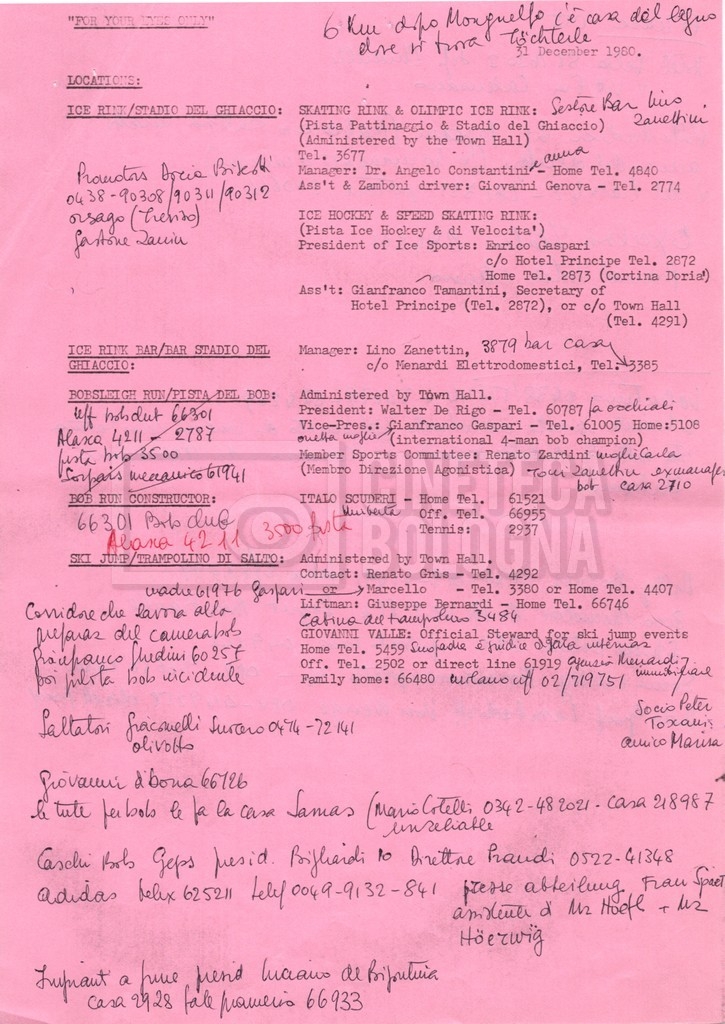 "FOR YOUR EYES ONLY"
6 Km dopo Monguelfo c'è casa del legno
dove si trova Töchterle
31 December 1980.
LOCATIONS:
ICE RINK/STADIO DEL GHIACCIO:
SKATING RINK & OLIMPIC ICE RINK: Bar Lino
Zanettin
(Pista Pattinaggio & Stadio del Ghiaccio)
(Administered by the Town Hall)
Tel. 3677
Manager: Dr. Angelo Constantini - Home Tel. 4840
Ass't & Zamboni driver: Giovanni Genova - Tel. 2774
0438-90308/90311/90312
orsago (Treviso)
ICE HOCKEY & SPEED SKATING RINK:
(Pista Ice Hockey & di Velocita')
President of Ice Sports: Enrico Gaspari
c/o Hotel Principe Tel. 2872
Home Tel. 2873 (Cortina Doria')
Ass't: Gianfranco Tamantini, Secretary of
Hotel Principe (Tel. 2872), or c/o Town Hall
(Tel. 4291)
ICE RINK BAR/BAR STADIO DEL
GHIACCIO:
Manager: Lino Zanettin, 3879 bar casa
c/o Menardi Elettrodomestici, Tel. 3385
BOBSLEIGH RUN/PISTA DEL BOB:
Uff bobclub 66301
Alaxa 4211 - 2787
pista bob 3500
meccanico 61941
Administered by Town Hall.
President: Walter De Rigo - Tel. 60787 fa occhiali
Vice-Pres.: Gianfranco Gaspari - Tel. 61005 Home:5108
moglie (international 4-man bob champion)
Member Sports Committee: Renato Zardini moglie Carla
(Membro Direzione Agonistica) Toni Zanettin ex manager
bob casa 2710
BOB RUN CONSTRUCTOR:
66301 Bob club
Alaxa 4211 3500 pista
ITALO SCUDERI - Home Tel. 61521
Umberta Off. Tel. 66955
Tennis: 2937
SKI JUMP/TRAMPOLINO DI SALTO:
Administered by Town Hall.
Contact: Renato Gris - Tel. 4292
madre 61976 Gaspari or Marcello - Tel. 3380 or Home Tel. 4407
Liftman: Giuseppe Bernardi - Home Tel. 66746
Cabina del trampolino 3484
GIOVANNI VALLE: Official Steward for ski jump events
Home Tel. 5459
Off. Tel. 2502 or direct line 61919 agenzia Menardi
immobiliare
Family home: 66480 milano uff 02/719751
Corridore che lavora alla
preparaz del camerabob
Gianfranco Ghedini 60257
poi pilota bob
Socio Peter
Toxani
amico Marisa
Saltatori Giacomelli 0474-72141
olivotto
Giovanni d'bona 66126
le tute per bob le fa la casa Samas (Mario Cotelli 0342-482021 - casa 218987
unreliable
Caschi Bob Geps presid. Direttore Prandi 0522-41348
adidas telex 625211 telef 0049-9132-841
presse abteilung Frau
assistente di Mr Hoefl + Mr
Höerwig
Impianti a fune presid Luciano de
casa 2928 66933
CINETECA
BOLOGNA